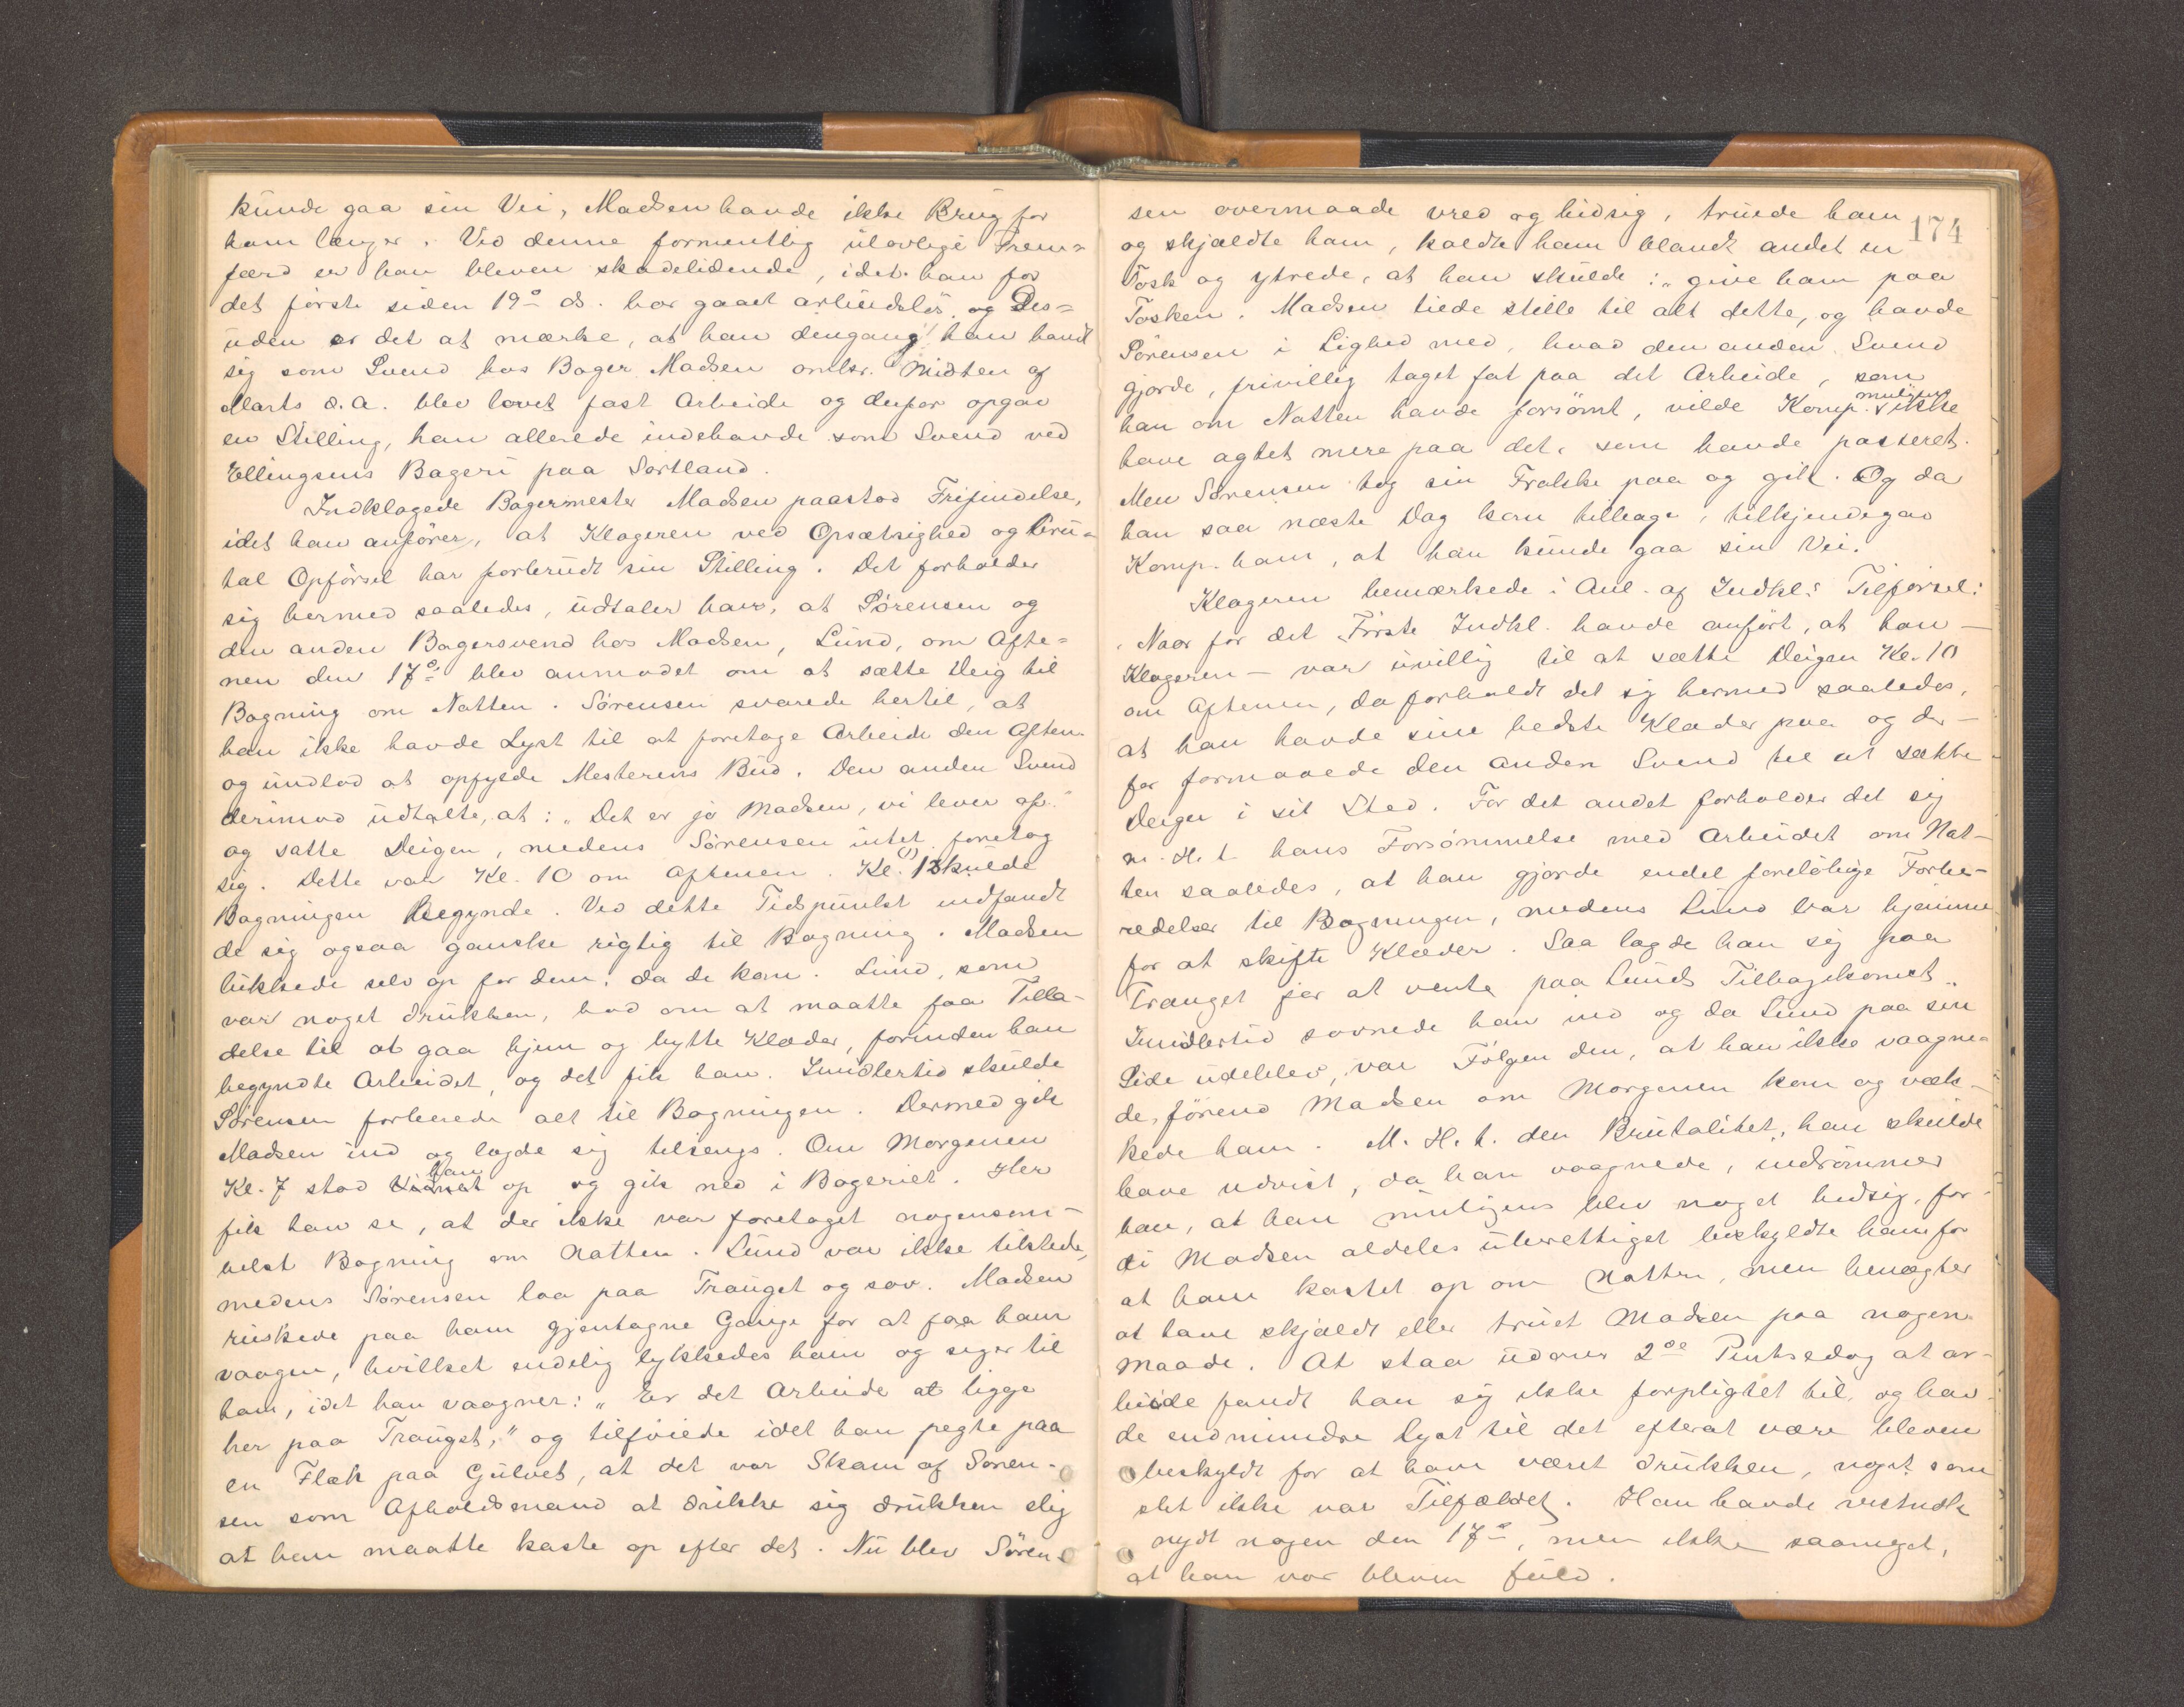 kunde gaa sin Vei, Madsen havde ikke Brug for
ham længer. Ved denne formentlig ulovlige Frem-
færd er han bleven skadelidende, idet han for
det første siden 19de ds. har gaaet arbeidsløs og Des-
uden er det at mærke, at han dengang han bandt
sig som Svend hos Bager Madsen omkr. Midten af
Marts d.a. blev lovet fast Arbeide og derfor opgav
en Stilling, han allerede indehavde som Svend ved
Ellingsens Bageri paa Sortland.
Indklagede Bagermester Madsen paastod Frifindelse,
idet han anfører, at Klageren ved Opsætsighed og bru-
tal Opførsel har forbrudt sin Stilling. Det forholder
sig hermed saaledes, udtaler han, at Sørensen og
den anden Bagersvend hos Madsen, Lund, om Afte-
nen den 17de blev anmodet om at sætte Deig til
Bagning om Natten. Sørensen svarede hertil, at
han ikke havde Lyst til at foretage Arbeide den Aften
og undlod at opfylde Mesterens Bud. Den anden Svend
derimod udtalte, at: "Det er jo Madsen, vi lever af."
og satte Deigen, medens Sørensen intet foretog
sig. Dette var Kl. 10 om Aftenen. Kl. 1 skulde
Bagningen begynde. Ved dette Tidspunkt indfandt
de sig ogsaa ganske rigtig til Bagning. Madsen
lukkede selv op for dem, da de kom. Lund, som
var noget drukken, bad om at maatte faa Tilla-
delse til at gaa hjem og bytte Klæder, forinden han
begyndte Arbeidet, og det fik han. Imidlertid skulde
Sørensen forberede alt til Bagningen. Dermed gik
Madsen ind og lagde sig tilsengs. Om Morgenen
Kl. 7 stod han op og gik ned i Bageriet. Her
fik han se, at der ikke var foretaget nogensom-
helst Bagning om Natten. Lund var ikke tilstede,
medens Sørensen laa paa Trauget og sov. Madsen
ruskede paa ham gjentagne Gange for at faa ham
vaagen, hvilket endelig lykkedes ham og siger til
ham, idet han vaagner: "Er det Arbeide at ligge
her paa Trauget," og tilføiede idet han pegte paa
en Flæk paa Gulvet, at det var Skam af Søren-
sen som Afholdsmand at drikke sig drukken slig
at han maatte kaste op efter det. Nu blev Søren-
174
sen overmaade vred og hidsig, truede ham
og skjældte ham, kaldte ham blandt andet en
Tosk og ytrede, at han skulde: "give ham paa
Tosken. Madsen tiede stille til alt dette, og havde
Sørensen i Lighed med, hvad den anden Svend
gjorde, frivillig taget fat paa det Arbeide, som
han om Natten havde forsømt, vilde Komp. muligens ikke
have agtet mere paa det, som havde passeret.
Men Sørensen tog sin Frakke paa og gik. Og da
han saa næste Dag kom tilbage, tilkjendegav
Komp. ham, at han kunde gaa sin Vei.
Klageren bemærkede i Anl. af Indkl.s Tilførsel:
Naar for det Første Indkl. havde anført, at han -
Klageren - var uvillig til at sætte Deigen Kl. 10
om Aftenen, da forholdt det sig hermed saaledes,
at han havde sine bedste Klæder paa og der-
for formaaede den anden Svend til at sætte
Deigen i sit Sted. For det andet forholder det sig
m. H. t. hans Forsømmelse med Arbeidet om Nat-
ten saaledes, at han gjorde endel foreløbige Forbe-
redelser til Bagningen, medens Lund var hjemme
for at skifte Klæder. Saa lagde han sig paa
Trauget for at vente paa Lunds Tilbagekomst.
Imidlertid sovnede han ind og da Lund paa sin
Side udeblev, var Følgen den, at han ikke vaagne-
de, førend Madsen om Morgenen kom og væk-
kede ham. M. H. t. den Brutalitet, han skulde
have udvist, da han vaagnede, indrømmer
han, at han muligens blev noget hidsig, for-
di Madsen aldeles uberettiget beskyldte ham for
at have kastet op om Natten, men benægter
at have skjældt eller truet Madsen paa nogen
Maade. At staa udover 2den Pintsedag at ar-
beide fandt han sig ikke forpligtet til, og hav-
de endmindre lyst til det efterat være bleven
beskyldt for at have været drukken, noget som
slet ikke var Tilfældet. Han havde vistnok
nydt nogen den 17de, men ikke saameget,
at han var bleven fuld.